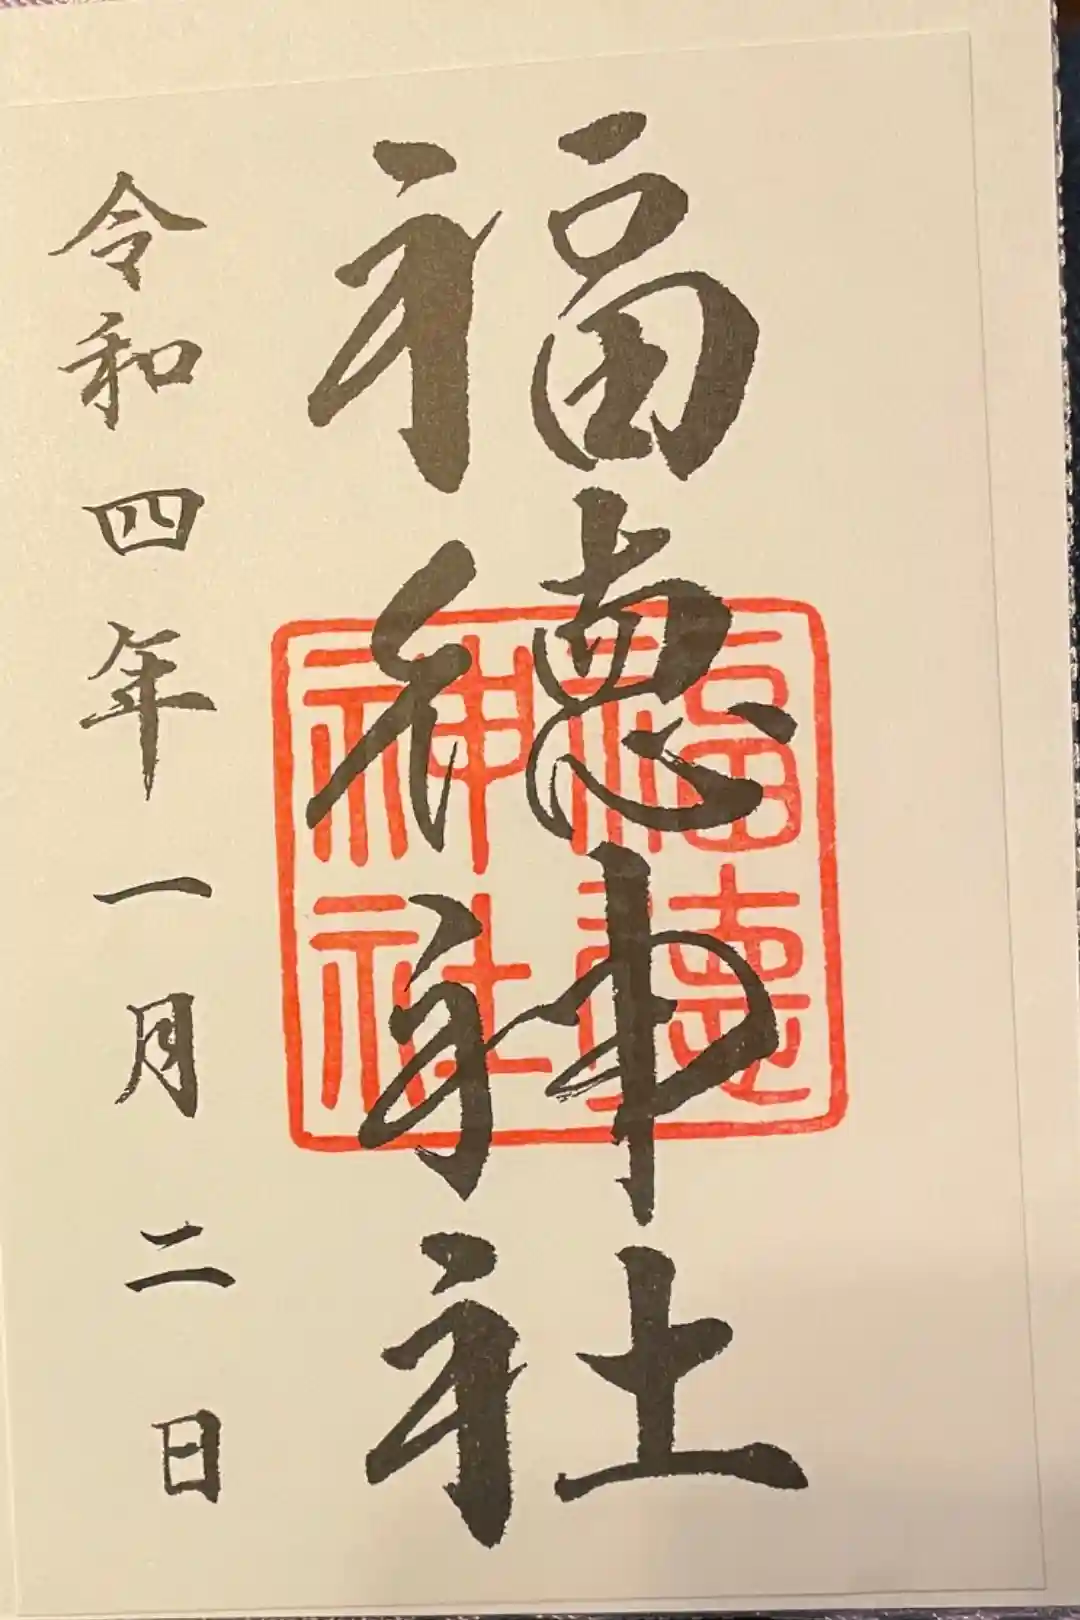 福徳神社
福徳神社
令和四年一月二日